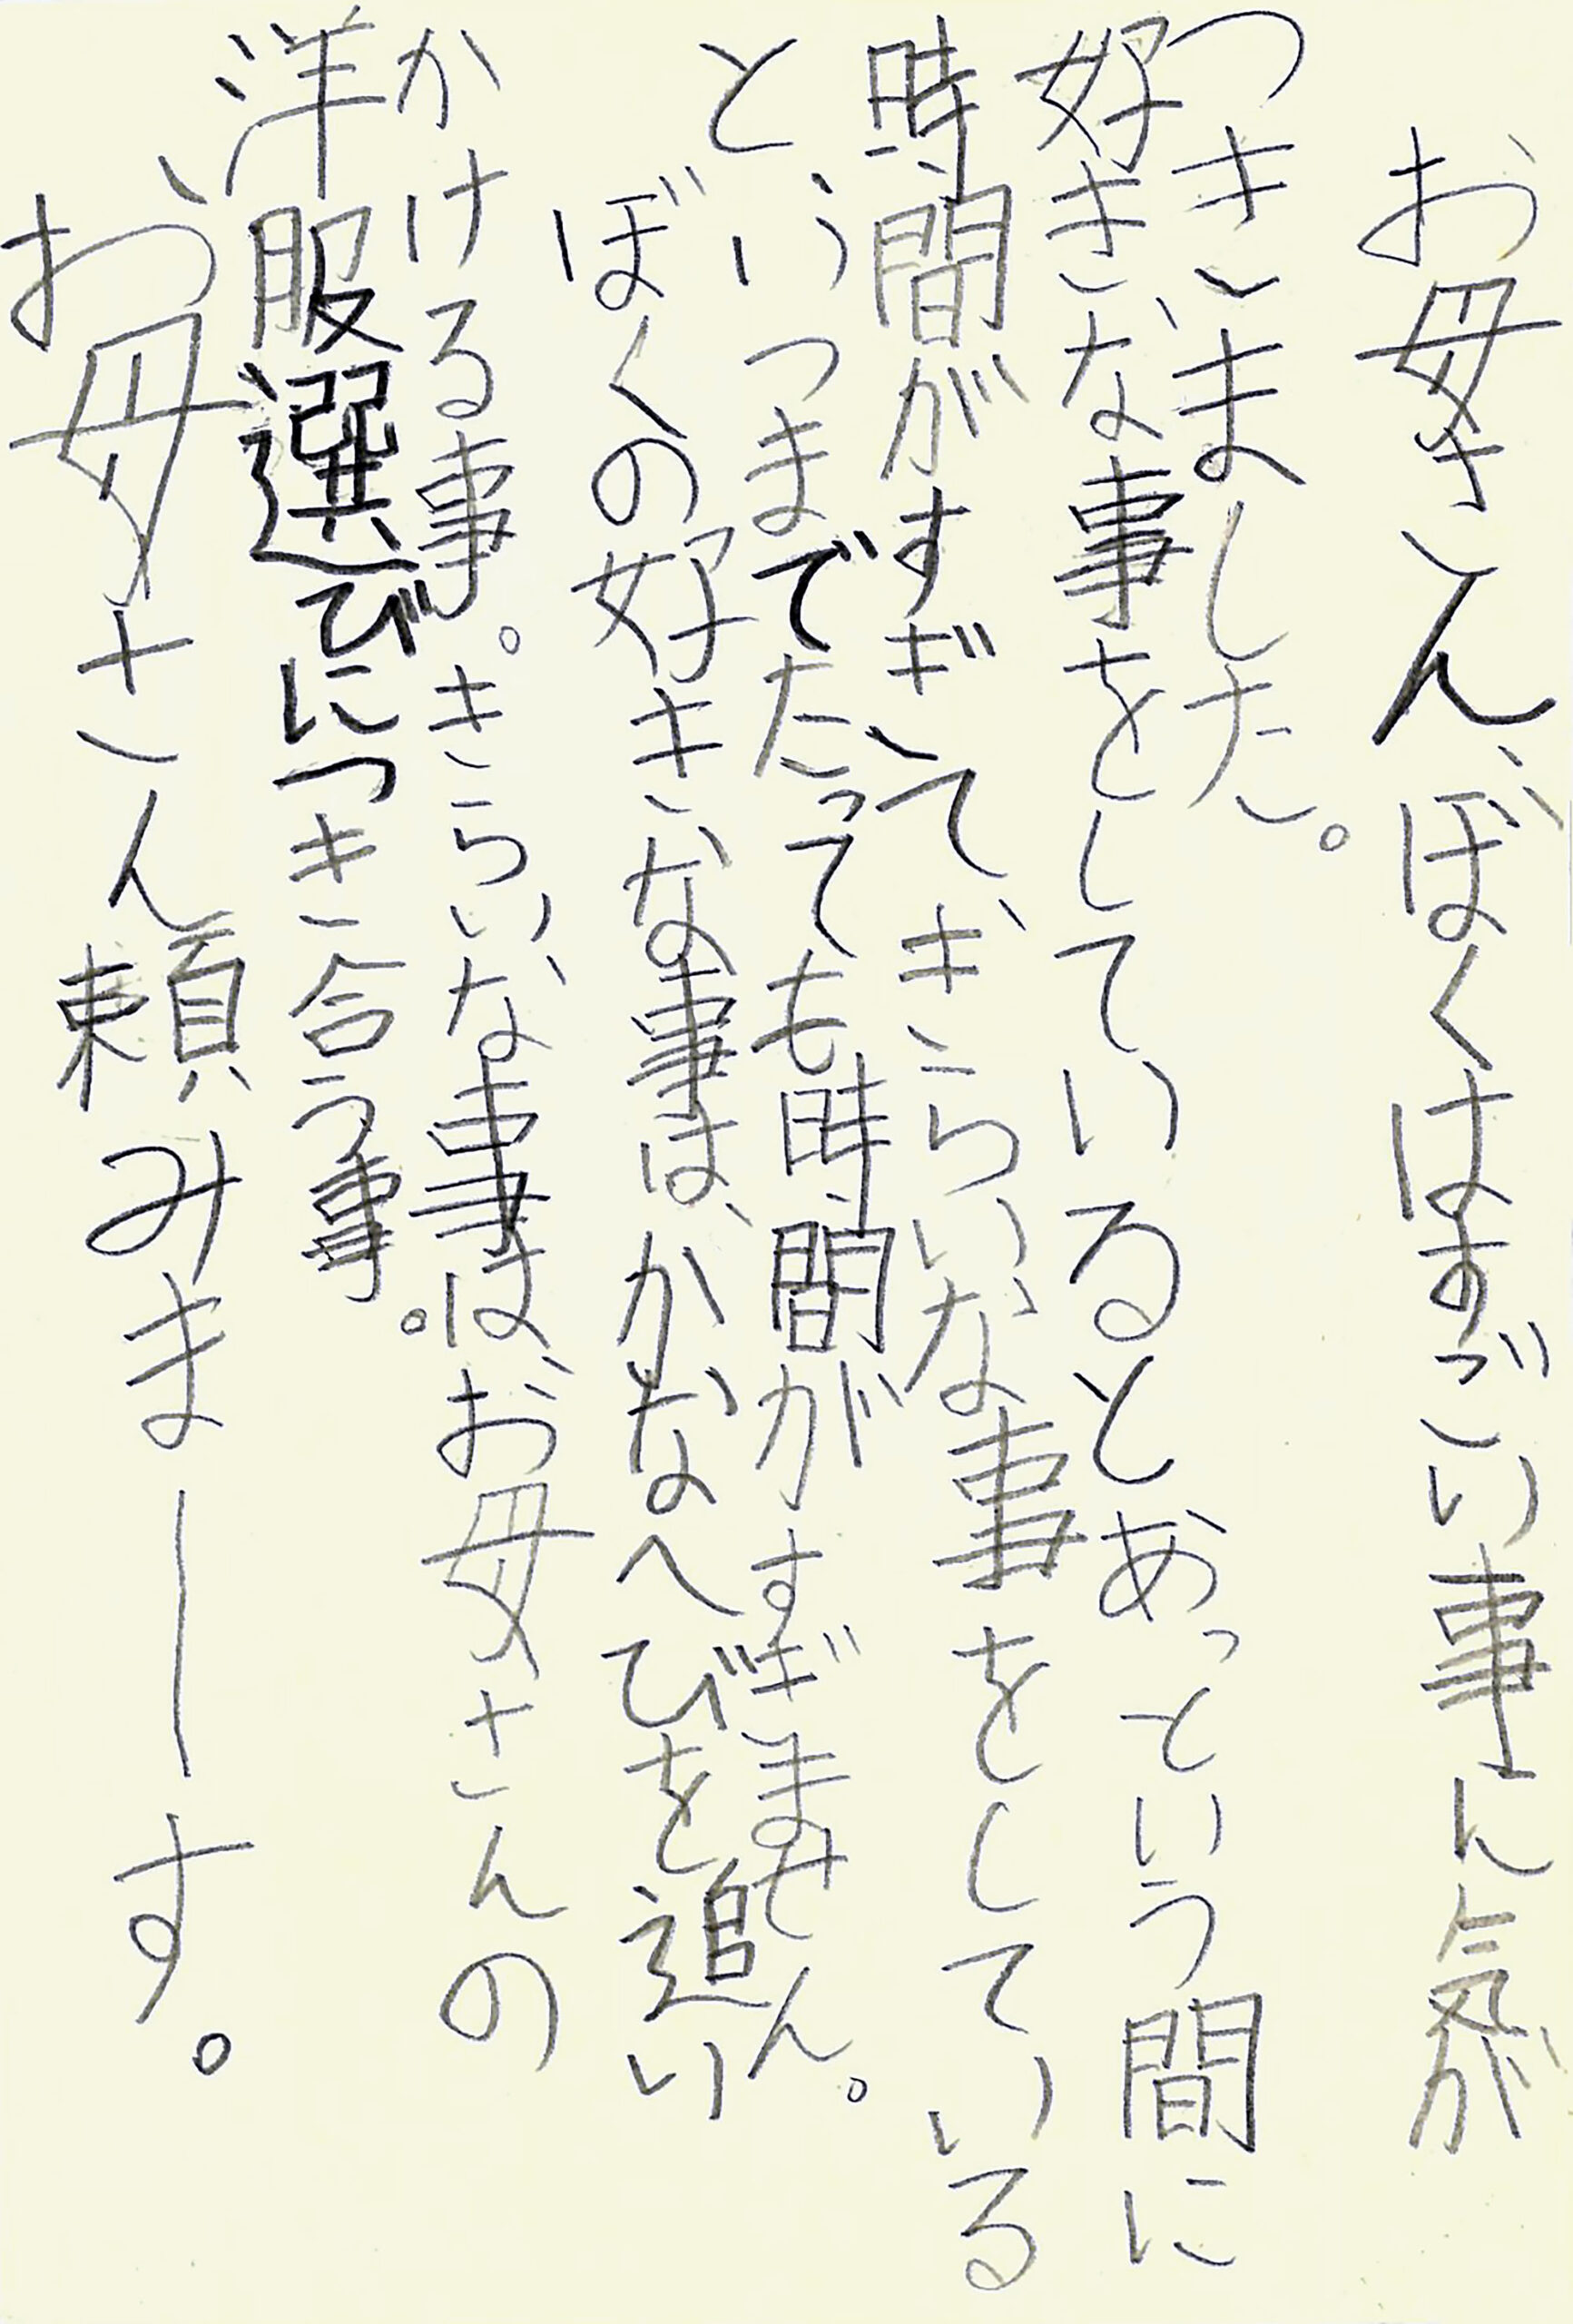 お母さん、ぼくはすごい事に気が
つきました。
好きな事をしているとあっという間に
時間がすぎて、きらいな事をしている
と、いつまでたっても時間がすぎません。
ぼくの好きな事は、かなへびを追い
かける事。きらいな事はお母さんの
洋服選びにつき合う事。
お母さん、頼みまーす。